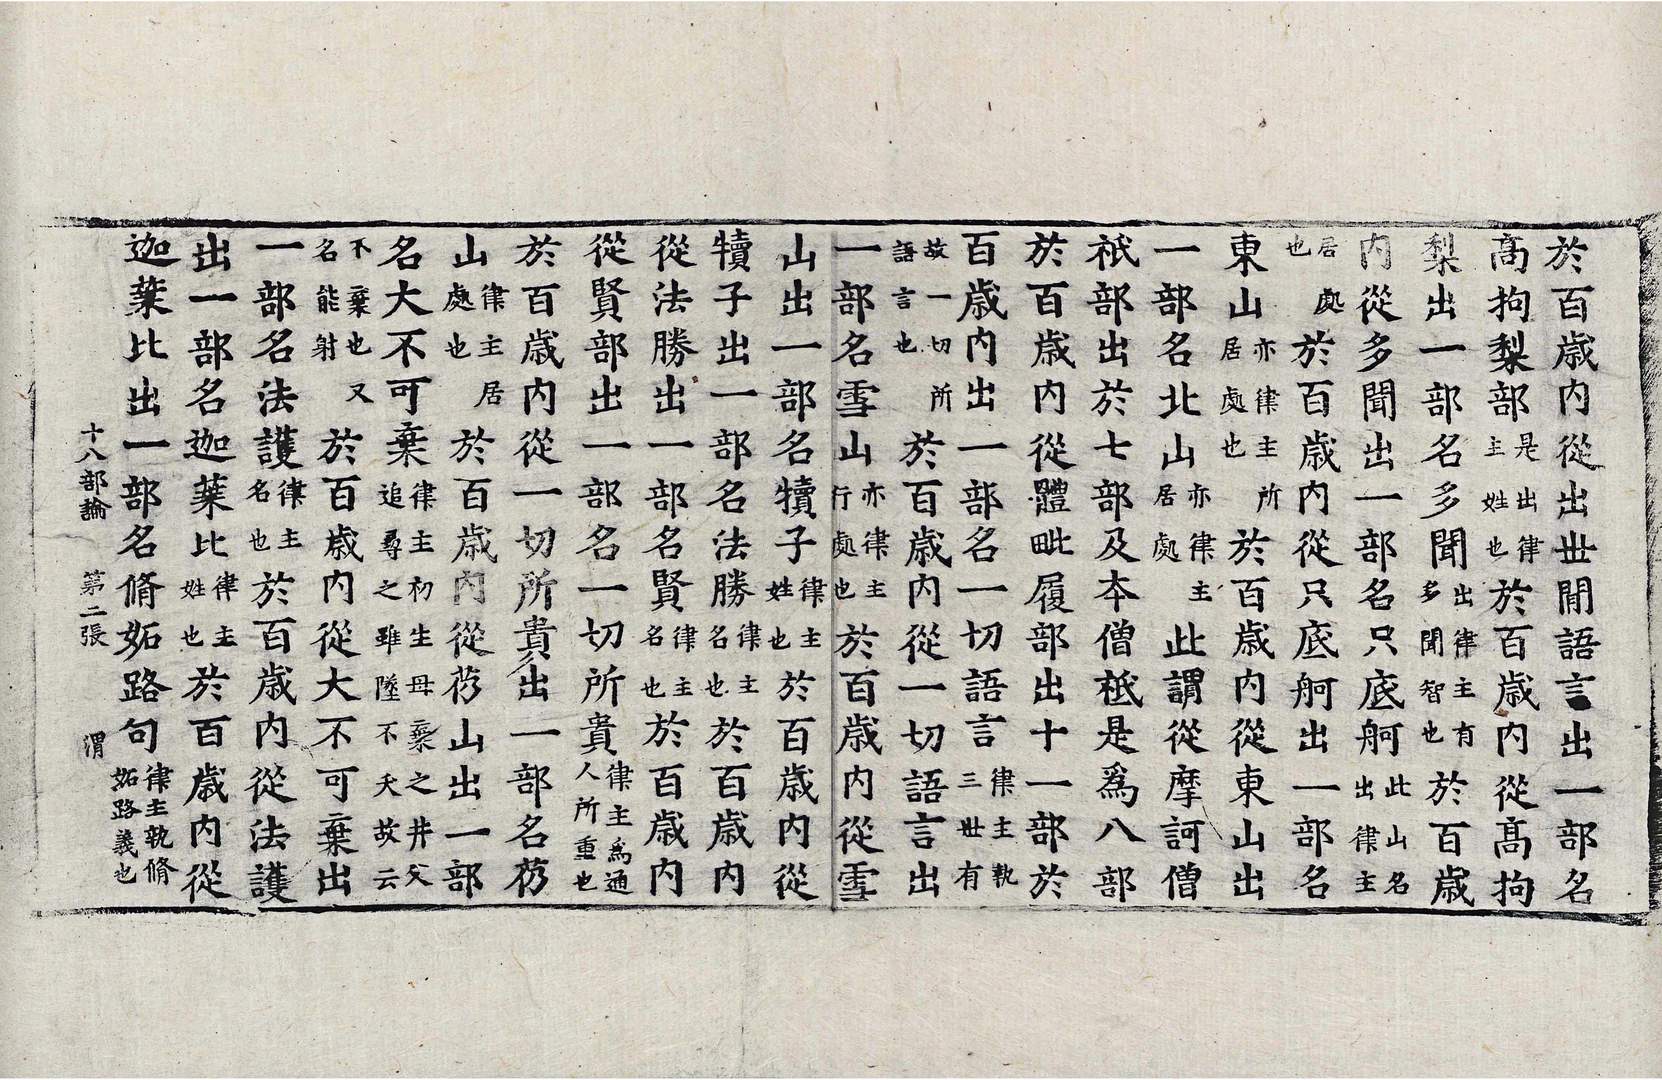 於百歳内從出世閒語言出一部名
髙拘梨部是出律主姓也於百歳内從髙拘
梨出一部名多聞出律主有多聞智也於百歳
内從多聞出一部名只底舸此山名出律主
居處也於百歳内從只底舸出一部名
東山亦律主所居處也於百歳内從東山出
一部名北山亦律主居處此謂從摩訶僧
祇部出於七部及本僧祇是爲八部
於百歳内從體毗履部出十一部於
百歳内出一部名一切語言律主執三世有
故一切所語言也於百歳内從一切語言出
一部名雪山亦律主行處也於百歳内從雪
山出一部名犢子律主姓也於百歳内從
犢子出一部名法勝律主名也於百歳内
從法勝出一部名賢律主名也於百歳内
從賢部出一部名一切所貴律主爲通人所重也
於百歳内從一切所貴出一部名芿
山律主居處也於百歳内從芿山出一部
名大不可棄律主初生母棄之井父追尋之雖墜不夭故云
不棄也又名能射於百歳内從大不可棄出
一部名法護律主名也於百歳内從法護
出一部名迦葉比律主姓也於百歳内從
迦葉比出一部名脩妬路句律主執脩妬路義也
十八部論 第二張 渭